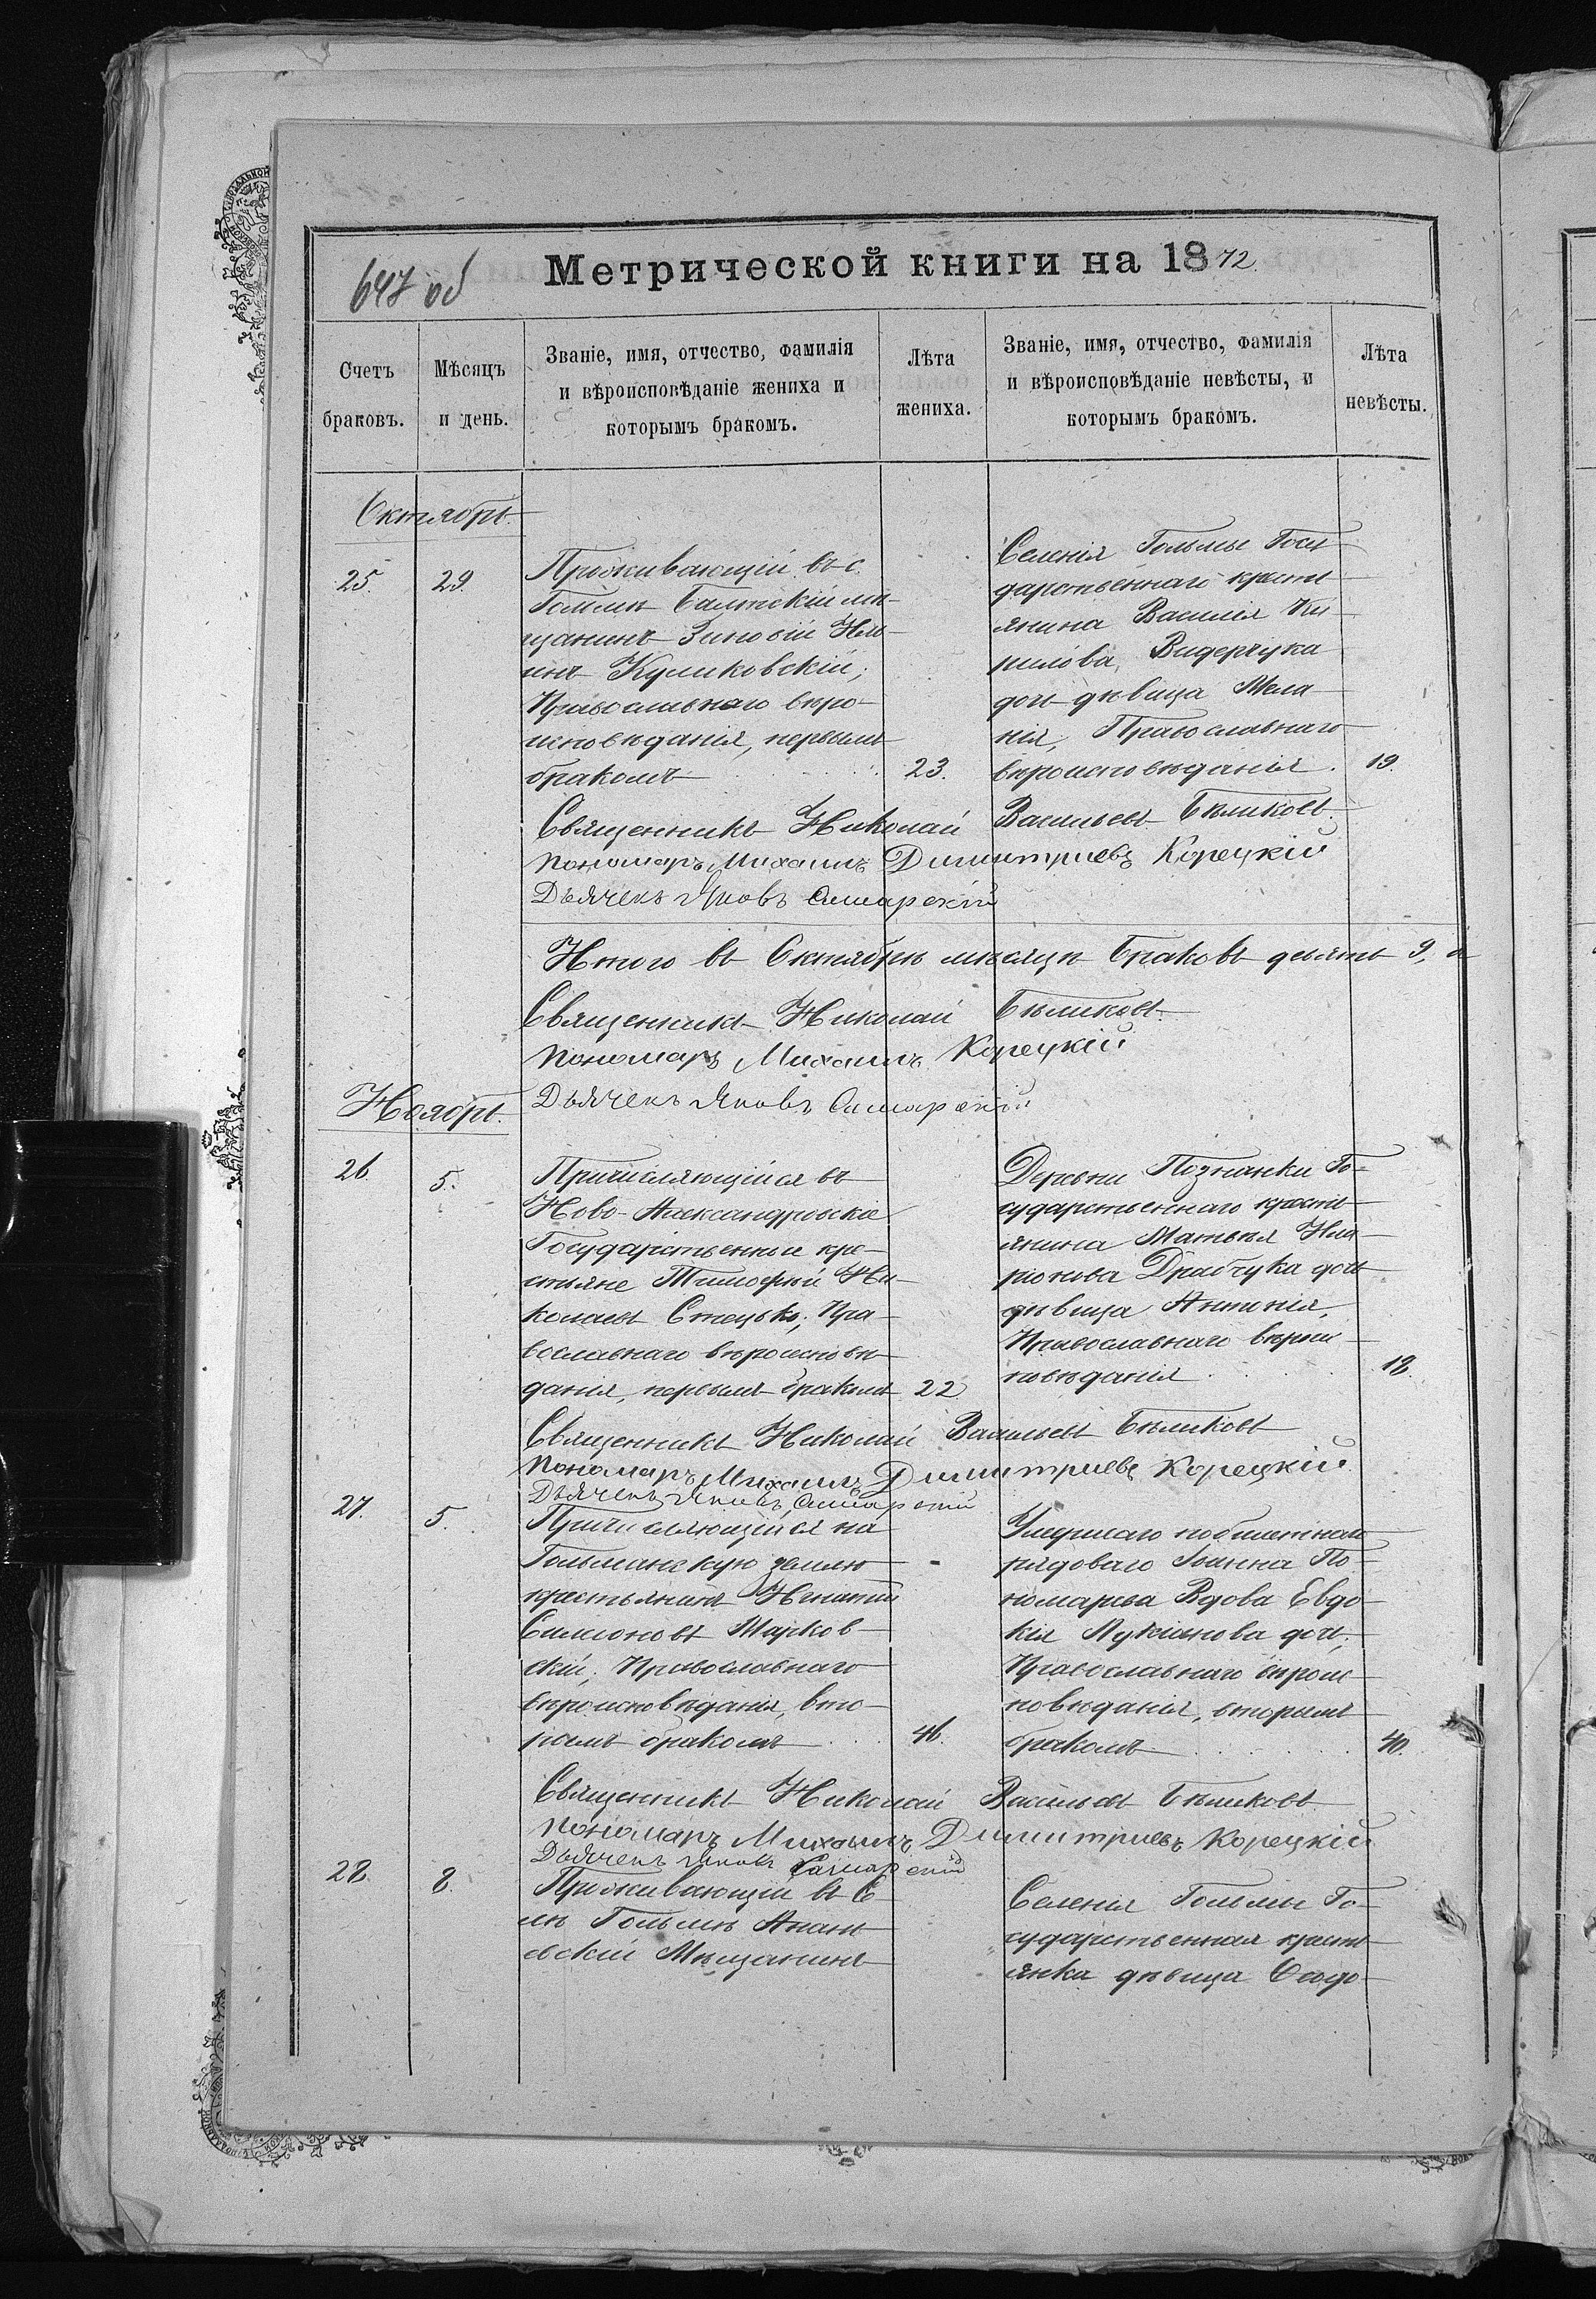 647 об
Метрической книги на 1872.
Счетъ браковъ.
Мѣсяцъ и день.
Званіе, имя, отчество, фамилія
и вѣроисповѣданіе жениха и
которымъ бракомъ.
Лѣта жениха.
Званіе, имя, отчество, фамилія
и вѣроисповѣданіе невѣсты, и
которымъ бракомъ.
Лѣта невѣсты.
Октябрь.
25.
29.
Проживающій въ с.
Гольмѣ Балтскій мѣ-
щанинъ Зиновій Иль-
инъ Куликовскій;
Православнаго вѣро-
исповѣданія, первымъ
бракомъ
23.
Селенія Гольмы Госу-
дарственнаго кресть-
янина Василія Ки-
рилова Видерчука
дочь дѣвица Мела-
нія, Православнаго
вѣроисповѣданія.
19.
Священникъ Николай Васильевъ Бѣликовъ.
Пономарь Михаилъ Димитриевъ Корецкій
Дьячекъ Яковъ Самарскій
Итого въ Октябрѣ мѣсяцѣ Браковъ девять 9,
Священникъ Николай Бѣликовъ.
Пономарь Михаилъ Корецкій
Дьячекъ Яковъ Самарскій
Ноябрь.
26.
5.
Причисляющійся въ
Ново-Александровскіе
Государственные кре-
стьяне Тимофей Ни-
колаевъ Стецько; Пра-
вославнаго вѣроисповѣ-
данія, первымъ бракомъ
22
Деревни Познанки Го-
сударственнаго кресть-
янина Матвѣя Ила-
ріонова Драбчука дочь
дѣвица Антонія,
Православнаго вѣроис-
повѣданія
18.
Священникъ Николай Васильевъ Бѣликовъ
Пономарь Михаилъ Димитриевъ Корецкій
Дьячекъ Яковъ Самарскій
27.
5.
Причисляющійся на
Гольманскую землю
крестьянинъ Игнатій
Симеоновъ Марков-
скій; Православнаго
вѣроисповѣданія, вто-
рымъ бракомъ
46.
Умершаго побилетнаго
рядоваго Іоанна По-
номарева Вдова Евдо-
кія Лукіанова дочь;
Православнаго вѣроис-
повѣданія, вторымъ
бракомъ
40.
Священникъ Николай Васильевъ Бѣликовъ
Пономарь Михаилъ Димитриевъ Корецкій
Дьячекъ Яковъ Самарскій
28.
8.
Проживающій въ Се-
лѣ Гольмѣ Анань-
евскій Мѣщанинъ
Селенія Гольмы Го-
сударственная кресть-
янка дѣвица Ѳеодо-